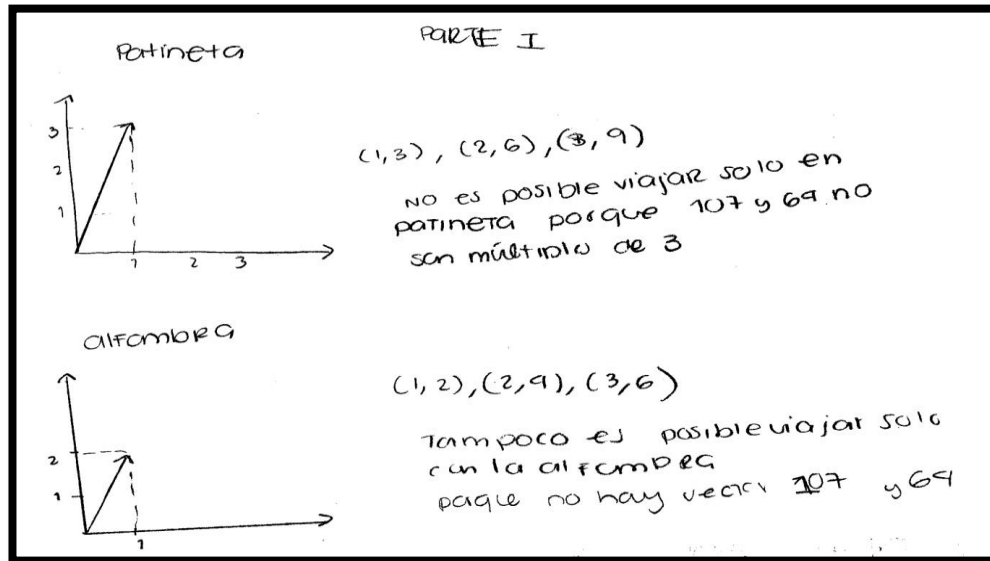 PARTE I
Patineta
3
2
1
1 2 3
(1,3), (2,6), (3,9)
NO es posible viajar solo en
patineta porque 107 y 64 no
son múltiplo de 3
alfombra
2
1
1
(1,2), (2,4), (3,6)
Tampoco es posible viajar solo
con la alfombra
paque no hay 107 y 64